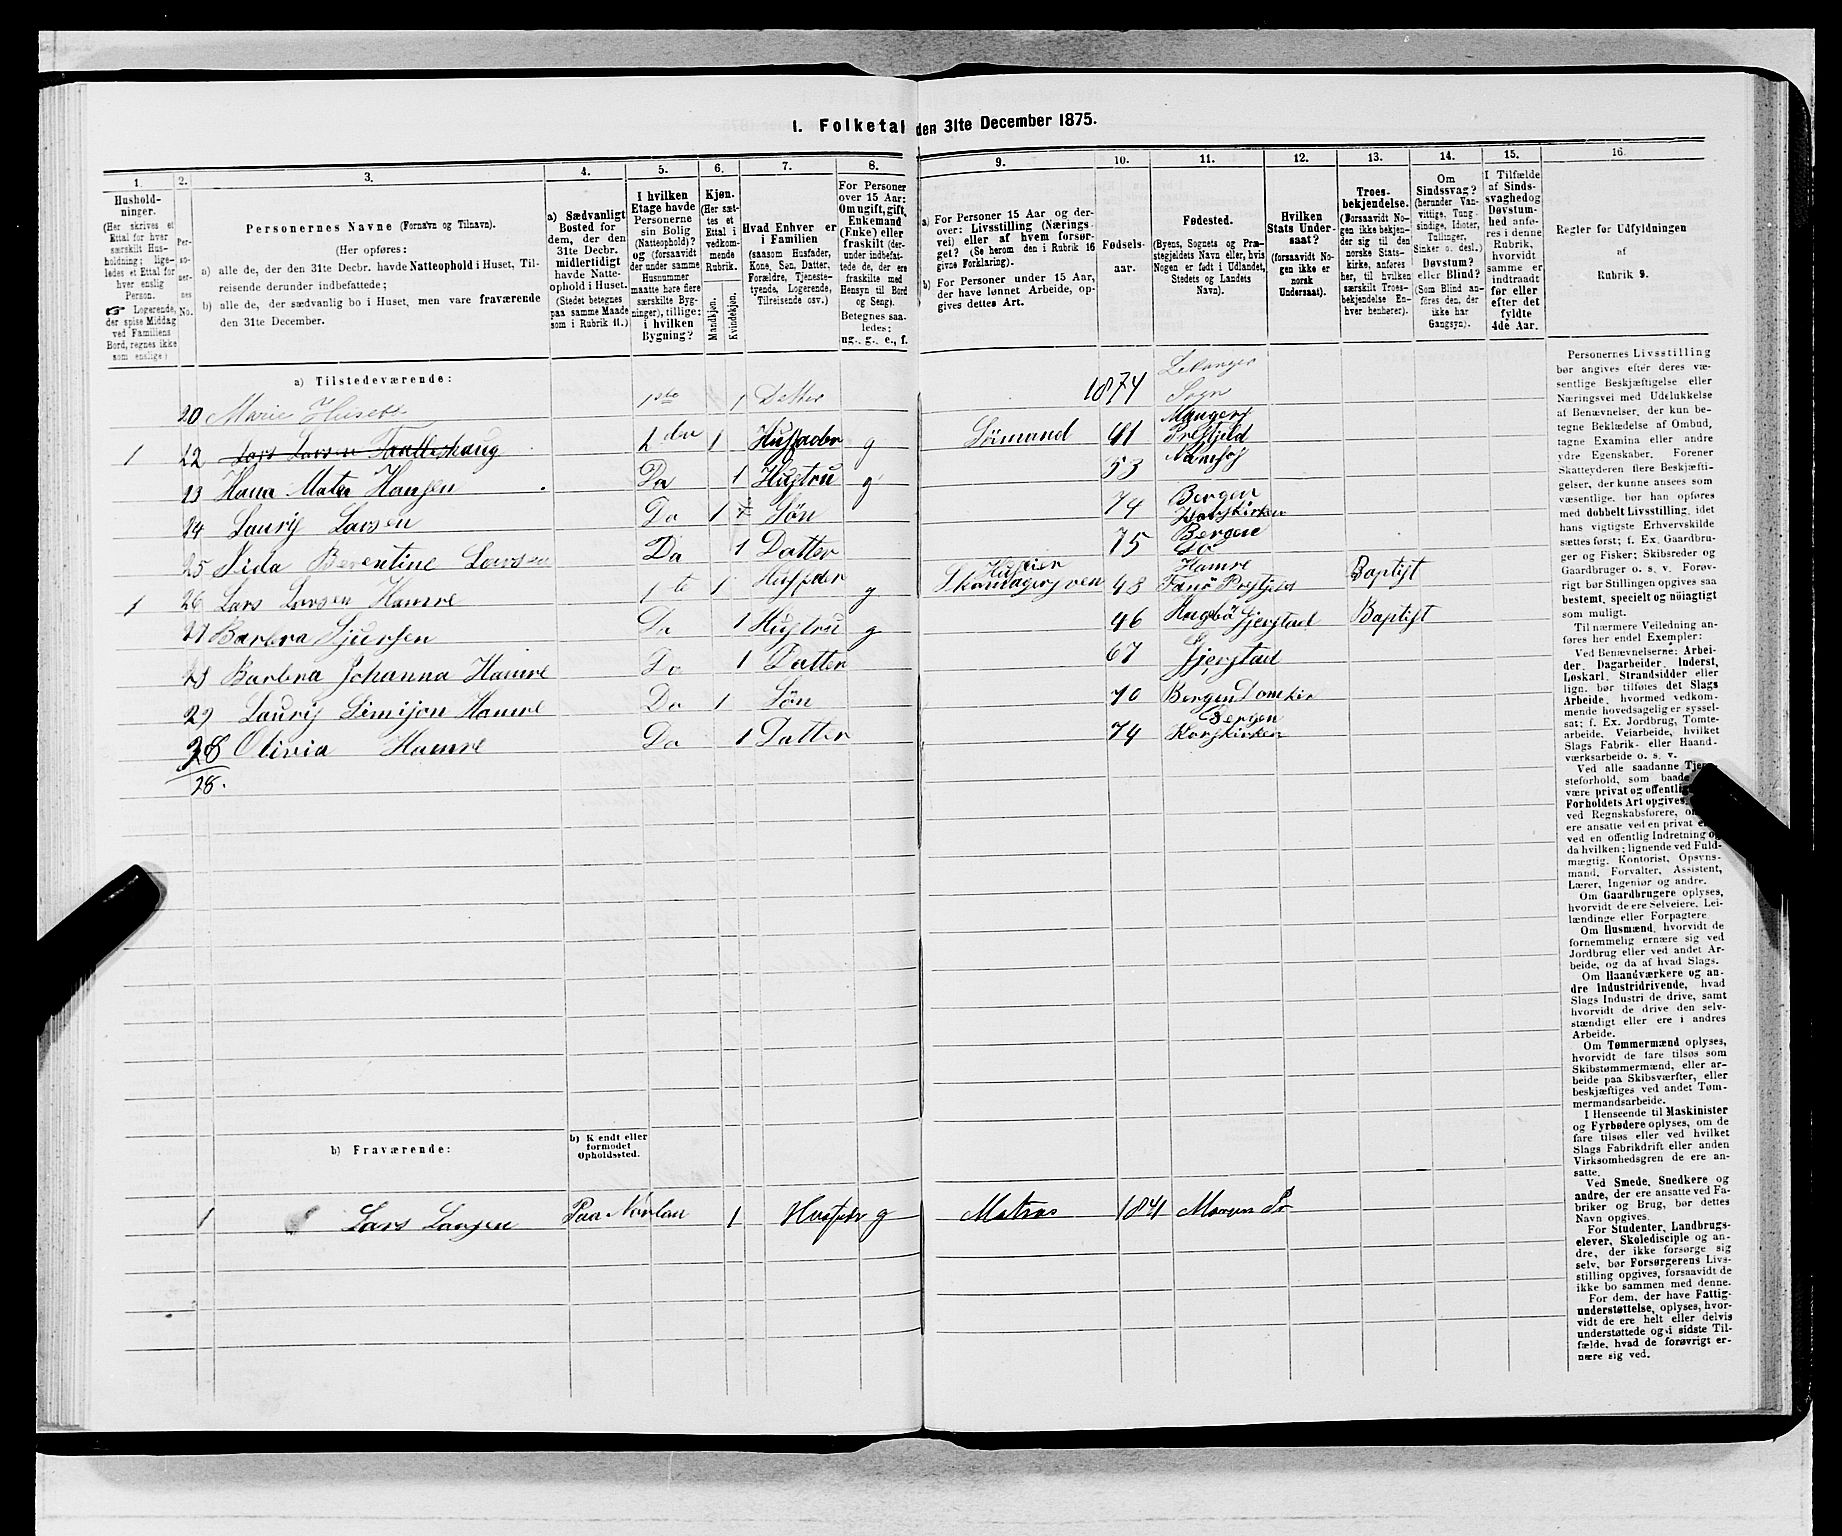 I. Folketal den 31te December 1875.
1. 2. 3. 4. 5. 6. 7. 8. 9. 10. 11. 12. 13. 14. 15. 16.
Hushold-
ninger.
(Her skrives et
Ettal for hver
særskilt Hus-
holdning; lige-
ledes et Ettal for
hver enslig
Person.
☞ Logerende,
der spise Middag
ved Familiens
Bord, regnes ikke
som enslige)
Per-
so-
ner-
nes
No.
Personernes Navne (Fornavn og Tilnavn).
(Her opføres:
a) alle de, der den 31te Decbr. havde Natteophold i Huset, Til-
reisende derunder indbefattede;
b) alle de, der sædvanlig bo i Huset, men vare fraværende
den 31te December.
a) Sædvanligt
Bosted for
dem, der den
31te Decbr.
midlertidigt
havde Natte-
ophold i Huset.
(Stedet betegnes
paa samme Maade
som i Rubrik 11.)
I hvilken
Etage havde
Personerne
sin Bolig
(Natteophold)?
og (forsaavidt
der under samme
Husnummer
maatte høre flere
særskilte Byg-
ninger), tillige:
i hvilken
Bygning?
Kjøn.
(Her sæt-
tes et
Ettal i
vedkom-
mende
Rubrik.
Mandkjøn.
Kvindekjøn.
Hvad Enhver er
i Familien
(saasom Husfader,
Kone, Søn, Datter,
Forældre, Tjeneste-
tyende, Logerende,
Tilreisende osv.)
For Personer
over 15 Aar:
Om ugift, gift,
Enkemand
(Enke) eller
fraskilt (der-
under indbefat-
tede de, der ere
fraskilte med
Hensyn til Bord
og Seng).
Betegnes saa-
ledes:
ug., g., e., f.
a) For Personer 15 Aar og der-
over: Livsstilling (Nærings-
vei) eller af hvem forsør-
get? (Se herom den i Rubrik 16
givne Forklaring).
b) For Personer under 15 Aar,
der have lønnet Arbeide, op-
gives dettes Art.
Fødsels-
aar.
Fødested.
(Byens, Sognets og Præ-
stegjeldets Navn eller, hvis
Nogen er født i Udlandet,
Stedets og Landets
Navn).
Hvilken
Stats Under-
saat?
(forsaavidt No-
gen ikke er
norsk
Undersaat).
Troes-
bekjendelse.
(Forsaavidt No-
gen ikke bekjen-
der sig til den
norske Stats-
kirke, anføres
her, til hvilken
særskilt Troes-
bekjendelse En-
hver henhører).
Om
Sindssvag?
(herunder Van-
vittige, Tung-
sindige, Idioter,
Tullinger,
Sinker o. desl.)
Døvstum?
eller Blind?
(Som Blind an-
føres den, der
ikke har
Gangsyn).
I Tilfælde
af Sinds-
svaghed og
Døvstum-
hed anfø-
res i denne
Rubrik,
hvorvidt
samme er
indtraadt
før eller
efter det
fyldte
4de Aar.
Regler for Udfyldningen
af
Rubrik 9.
a) Tilstedeværende:
20 Marie 1ste 1 Datter 1874 Lekanger Sogn
1 22 Lars Larsen 2den 1 Husfader g Sömand 41 Manger Prestjeld
23 Hana Hansen Do 1 Hustru g 53 Namsos
24 Laurij Larsen Do 1 Søn 74 Bergen Korskirken
25 Berentine Larsen Do 1 Datter 75 Bergen Do
1 26 Lars Larsen Hamre 1te 1 Husfader g 43 Hamre Prestjeld Baptist
27 Barbra Sjursen Do 1 Hustru g 46 Baptist
28 Barbra Johanna Hamre Do 1 Datter 67
29 Laurij Simijon Hamre Do 1 Søn 70 Bergen Domkir
28 Olivia Hamre Do 1 Datter 74 Bergen Korskirken
28.
b) Fraværende:
b) Kjendt eller
formodet
Opholdssted.
1 Lars Larsen Paa Norlan 1 Husfader g Matros 1841
Personernes Livsstilling
bør angives efter deres væ-
sentlige Beskjæftigelse eller
Næringsvei med Udelukkelse
af Benævnelser, der kun be-
tegne Beklædelse af Ombud,
tagne Examina eller andre
ydre Egenskaber. Forener
Skatteyderen flere Beskjæfti-
gelser, der kunne ansees som
væsentlige, bør han opføres
med dobbelt Livsstilling, idet
hans vigtigste Erhvervskilde
sættes først; f. Ex. Gaardbru-
ger og Fisker; Skibsreder og
Gaardbruger o. s. v. Forøv-
rigt bør Stillingen opgives saa
bestemt, specielt og nøiagtigt
som muligt.
Til nærmere Veiledning an-
føres her endel Exempler:
Ved Benævnelserne: Arbei-
der, Dagarbeider, Inderst,
Løskarl, Strandsidder eller
lign. bør tilføies det Slags
Arbeide, hvormed vedkom-
mende hovedsagelig er syssel-
sat; f. Ex. Jordbrug, Tomte-
arbeide, Veiarbeide, hvilket
Slags Fabrik- eller Haand-
værksarbeide o. s. v.
Ved alle saadanne Tjene-
steforhold, som baade
være privat og offentlig,
Forholdets Art opgives,
ved Regnskabsførere, om
ere ansatte ved en privat
ved en offentlig Indretning og
da hvilken; lignende ved Fuld-
mægtig, Kontorist, Opsyns-
mand, Forvalter, Assistent,
Lærer, Ingeniør og andre.
Om Gaardbrugere oplyses,
hvorvidt de ere Selveiere, Lei-
lændinge eller Forpagtere.
Om Husmænd, hvorvidt de
fornemmelig ernære sig ved
Jordbrug eller ved andet Ar-
beide, og da af hvad Slags.
Om Haandværkere og an-
dre Industridrivende, hvad
Slags Industri de drive, samt
hvorvidt de drive den selv-
stændigt eller ere i andres
Arbeide.
Om Tømmermænd oplyses,
hvorvidt de fare tilsøs som
Skibstømmermænd, eller ar-
beide paa Skibsværfter, eller
beskjæftiges ved andet Tøm-
mermandsarbeide.
I Henseende til Maskinister
og Fyrbødere oplyses, om de
fare tilsøs eller ved hvilket
Slags Fabrikdrift eller anden
Virksomhedsgren de ere an-
satte.
Ved Smede, Snedkere og
andre, der ere ansatte ved Fa-
briker og Brug, bør dettes
Navn opgives.
For Studenter, Landbrugs-
elever, Skoledisciple og an-
dre, der ikke forsørge sig
selv, bør Forsørgerens Livs-
stilling opgives, forsaavidt de
ikke bo sammen med denne.
For dem, der have Fattig-
understøttelse, oplyses, hvor-
vidt de ere helt eller delvis
understøttede og i sidste Til-
fælde, hvad de forøvrigt er-
nære sig ved.